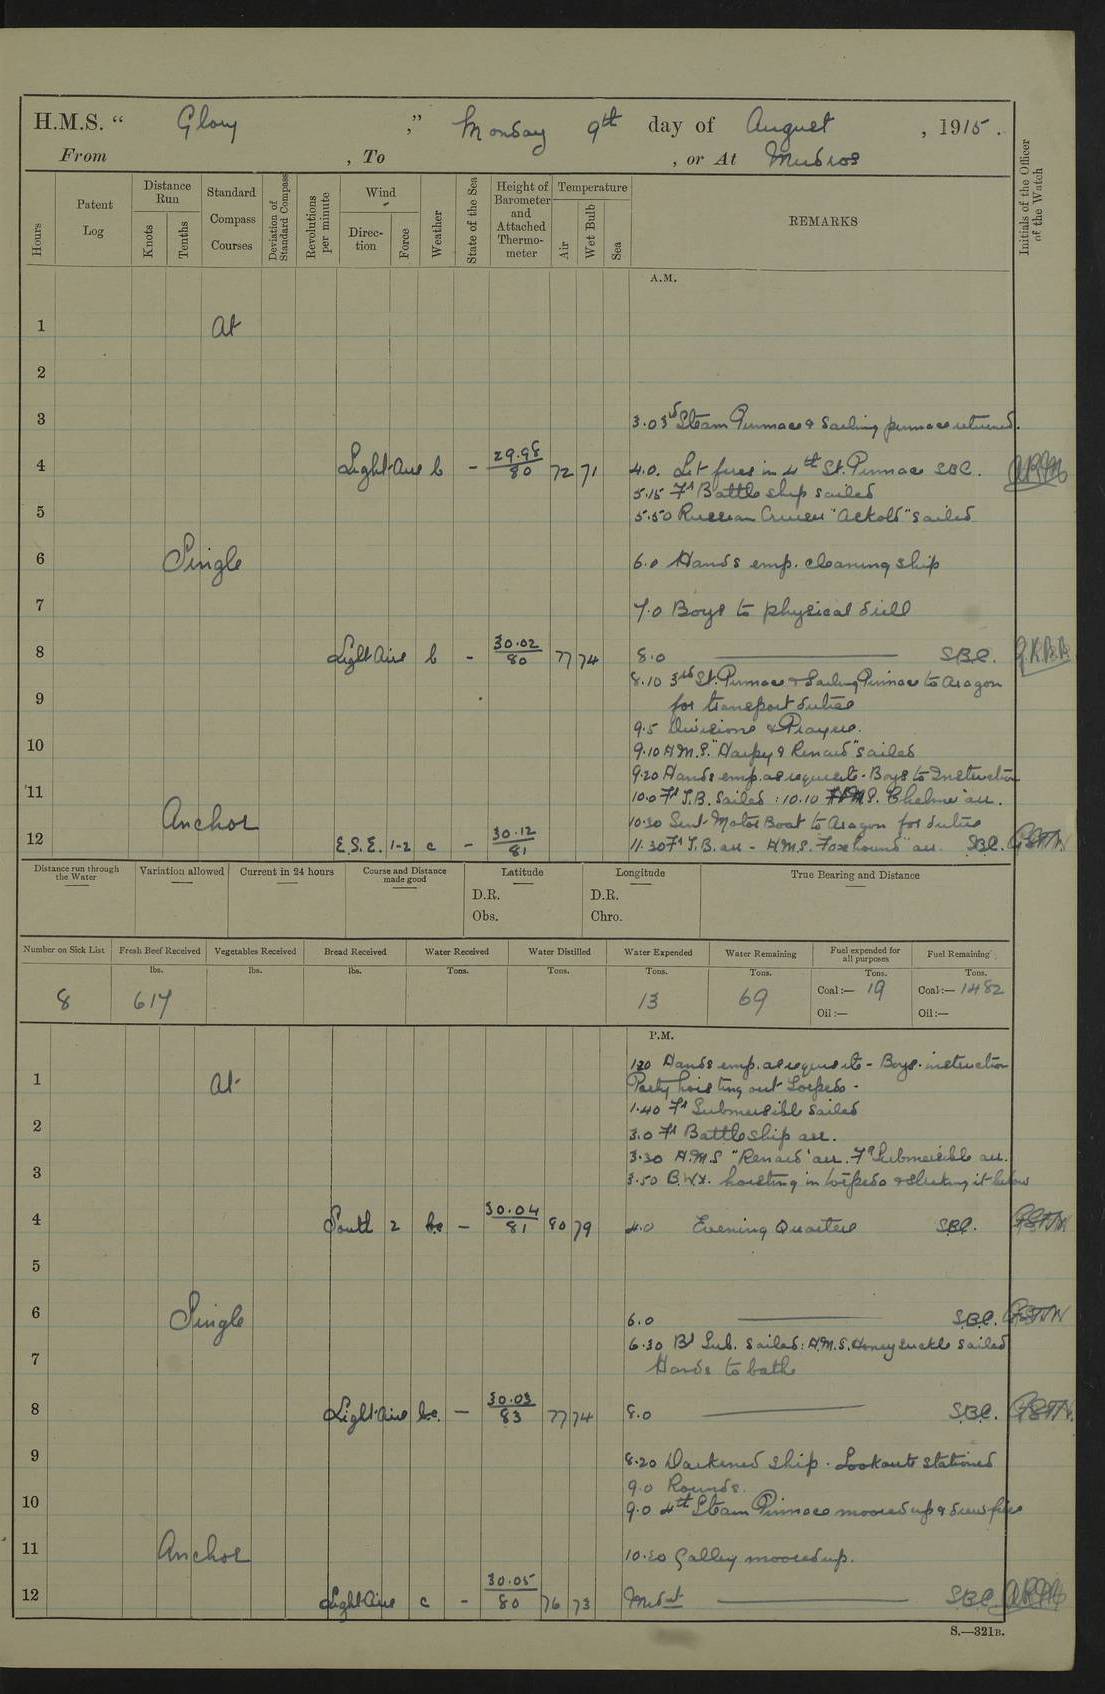 H.M.S. “ Glory ,” Monday 9th day of August , 1915 .
From , To , or At Mudros
Initials of the Officer of the Watch
Hours
Patent Log
Distance Run
Knots
Tenths
Standard Compass Courses
Deviation of Standard Compass
Revolutions per minute
Wind
Direction
Force
Weather
State of the Sea
Height of Barometer and Attached Thermometer
Temperature
Air
Wet Bulb
Sea
REMARKS
A.M.
1 At
2
3 3.0 3d Steam Pinnace & Sailing pinnace returned.
4 Light Airs b - 29.98/80 72 71 4.0. Lit fires in 4th St. Pinnace SBC.
5.15 Fr Battleship sailed
5 5.50 Russian Cruiser "Askold" sailed
6 Single 6.0 Hands emp. cleaning ship
7 7.0 Boys to physical drill
8 Light Airs b - 30.02/80 77 74 8.0 S.B.C.
8.10 3rd St. Pinnace & Sailing Pinnace to Aragon
9 for transport duties
9.5 Divisions & Prayers.
10 9.10 H.M.S. "Harpy & Renard" sailed
9.20 Hands emp. as requisite - Boys to Instruction
11 10.0 Fr T.B. Sailed : 10.10 H.M.S. Chelmer arr.
Anchor 10.30 Sent Motor Boat to Aragon for duties
12 E.S.E. 1-2 c - 30.12/81 11.30 Fr T.B. arr - H.M.S. Foxhound arr. S.B.C.
Distance run through the Water
Variation allowed
Current in 24 hours
Course and Distance made good
Latitude
D.R.
Obs.
Longitude
D.R.
Chro.
True Bearing and Distance
Number on Sick List
Fresh Beef Received
Vegetables Received
Bread Received
Water Received
Water Distilled
Water Expended
Water Remaining
Fuel expended for all purposes
Fuel Remaining
lbs. lbs. lbs. Tons. Tons. Tons. Tons. Tons. Tons.
8 617 13 69 Coal:— 19 Coal:— 1482
Oil:— Oil:—
P.M.
1.20 Hands emp. as requisite - Boys instruction
1 At Party hoisting out Torpedo -
1.40 Fr Submersible sailed
2 3.0 Fr Battleship arr.
3.30 H.M.S "Renard" arr. Fr Submersible arr.
3 3.50 hoisting in torpedo & striking it below
4 South 2 bc - 30.04/81 80 79 4.0 Evening Quarters SBC.
5
6 Single 6.0 S.B.C.
6.30 Br Sub. sailed: H.M.S. Honeysuckle sailed
7 Hands to bathe
8 Light Airs bc. - 30.03/83 77 74 8.0 S.B.C.
9 8.20 Darkened ship. Lookouts stationed
9.0 Rounds.
10 9.0 4th Steam Pinnace moored up & drew fires
11 Anchor 10.20 Galley moored up.
12 Light Airs c - 30.05/80 76 73 Midnt S.B.C.
S.—321B.